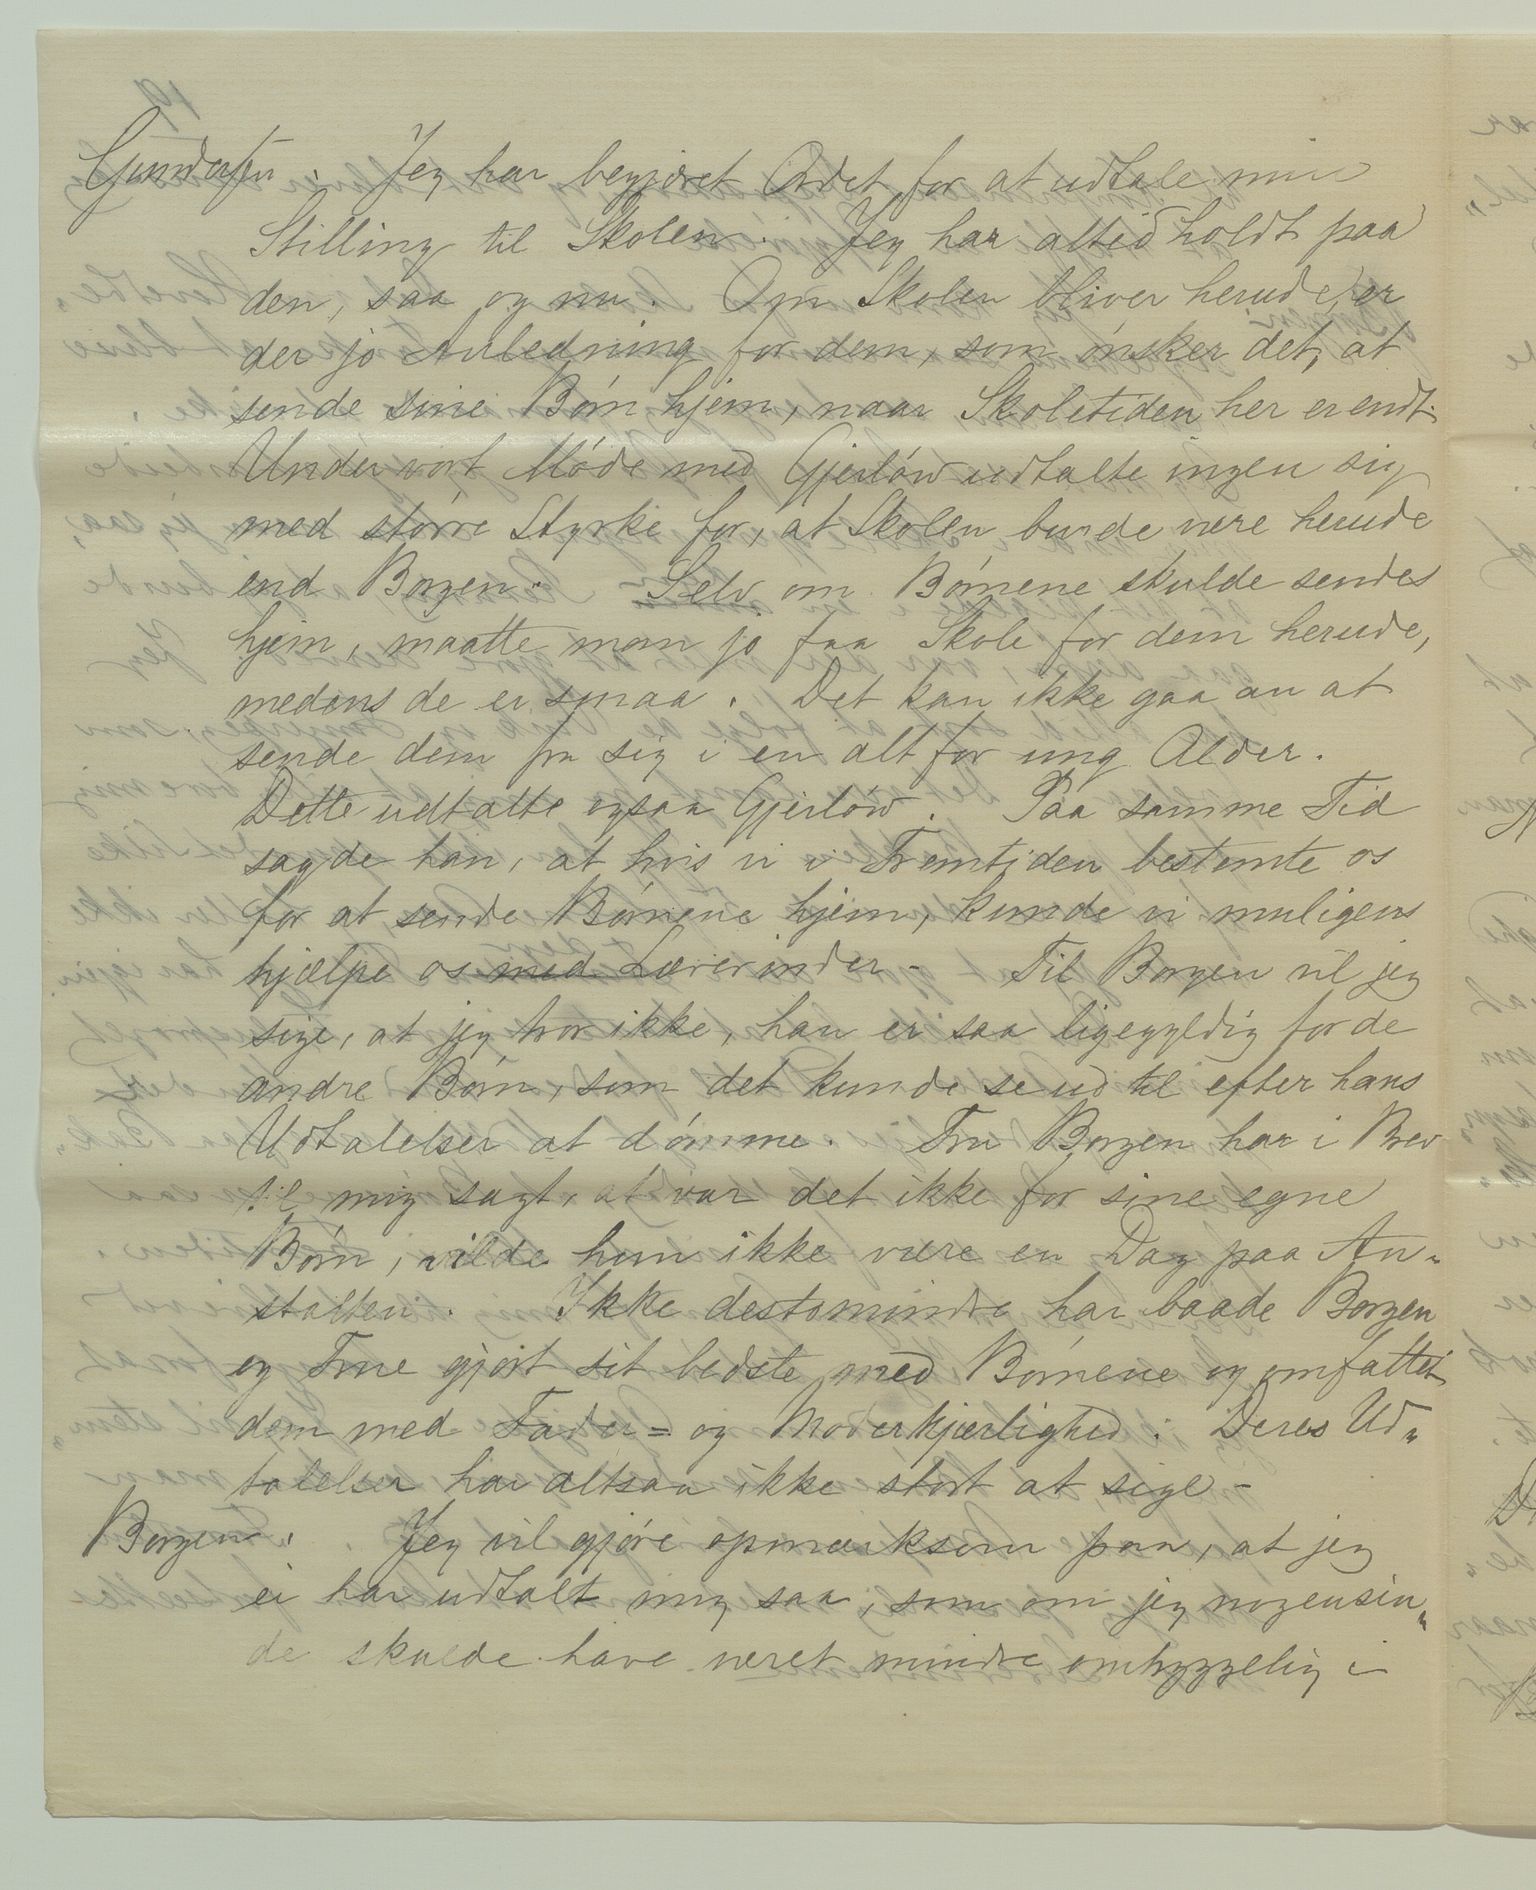 Gundersen: Jeg har begjæret Ordet for at udtale min
Stilling til Skolen. Jeg har altid holdt paa
den, saa og nu. Om Skolen bliver herude, er
der jo Anledning for dem, som ønsker det, at
sende sine Børn hjem, naar Skoletiden her er endt.
Under vort Møde med Gjerløw udtalte ingen sig
med større Styrke for, at Skolen burde være herude
end Borgen. Selv om Børnene skulde sendes
hjem, maatte man jo faa Skole for dem herude,
medens de er smaa. Det kan ikke gaa an at
sende dem fra sig i en alt for ung Alder.
Dette udtalte ogsaa Gjerløw. Paa samme Tid
sagde han, at hvis vi i Fremtiden bestemte os
for at sende Børnene hjem, kunde vi muligens
hjælpe os med Lærerinder. Til Borgen vil jeg
sige, at jeg tror ikke, han er saa ligegyldig for de
andre Børn, som det kunde se ud til efter hans
Udtalelser at dømme. Fru Borgen har i Brev
til mig sagt, at var det ikke for sine egne
Børn, vilde hun ikke være en Dag paa An-
stalten. Ikke destomindre har baade Borgen
og Frue gjort sit bedste med Børnene og omfattet
dem med Fader= og Moderkjærlighed. Deres Ud-
talelser har altsaa ikke stort at sige -
Borgen: Jeg vil gjøre opmærksom paa, at jeg
ei har udtalt mig saa, som om jeg nogensin-
de skulde have været mindre omhyggelig i